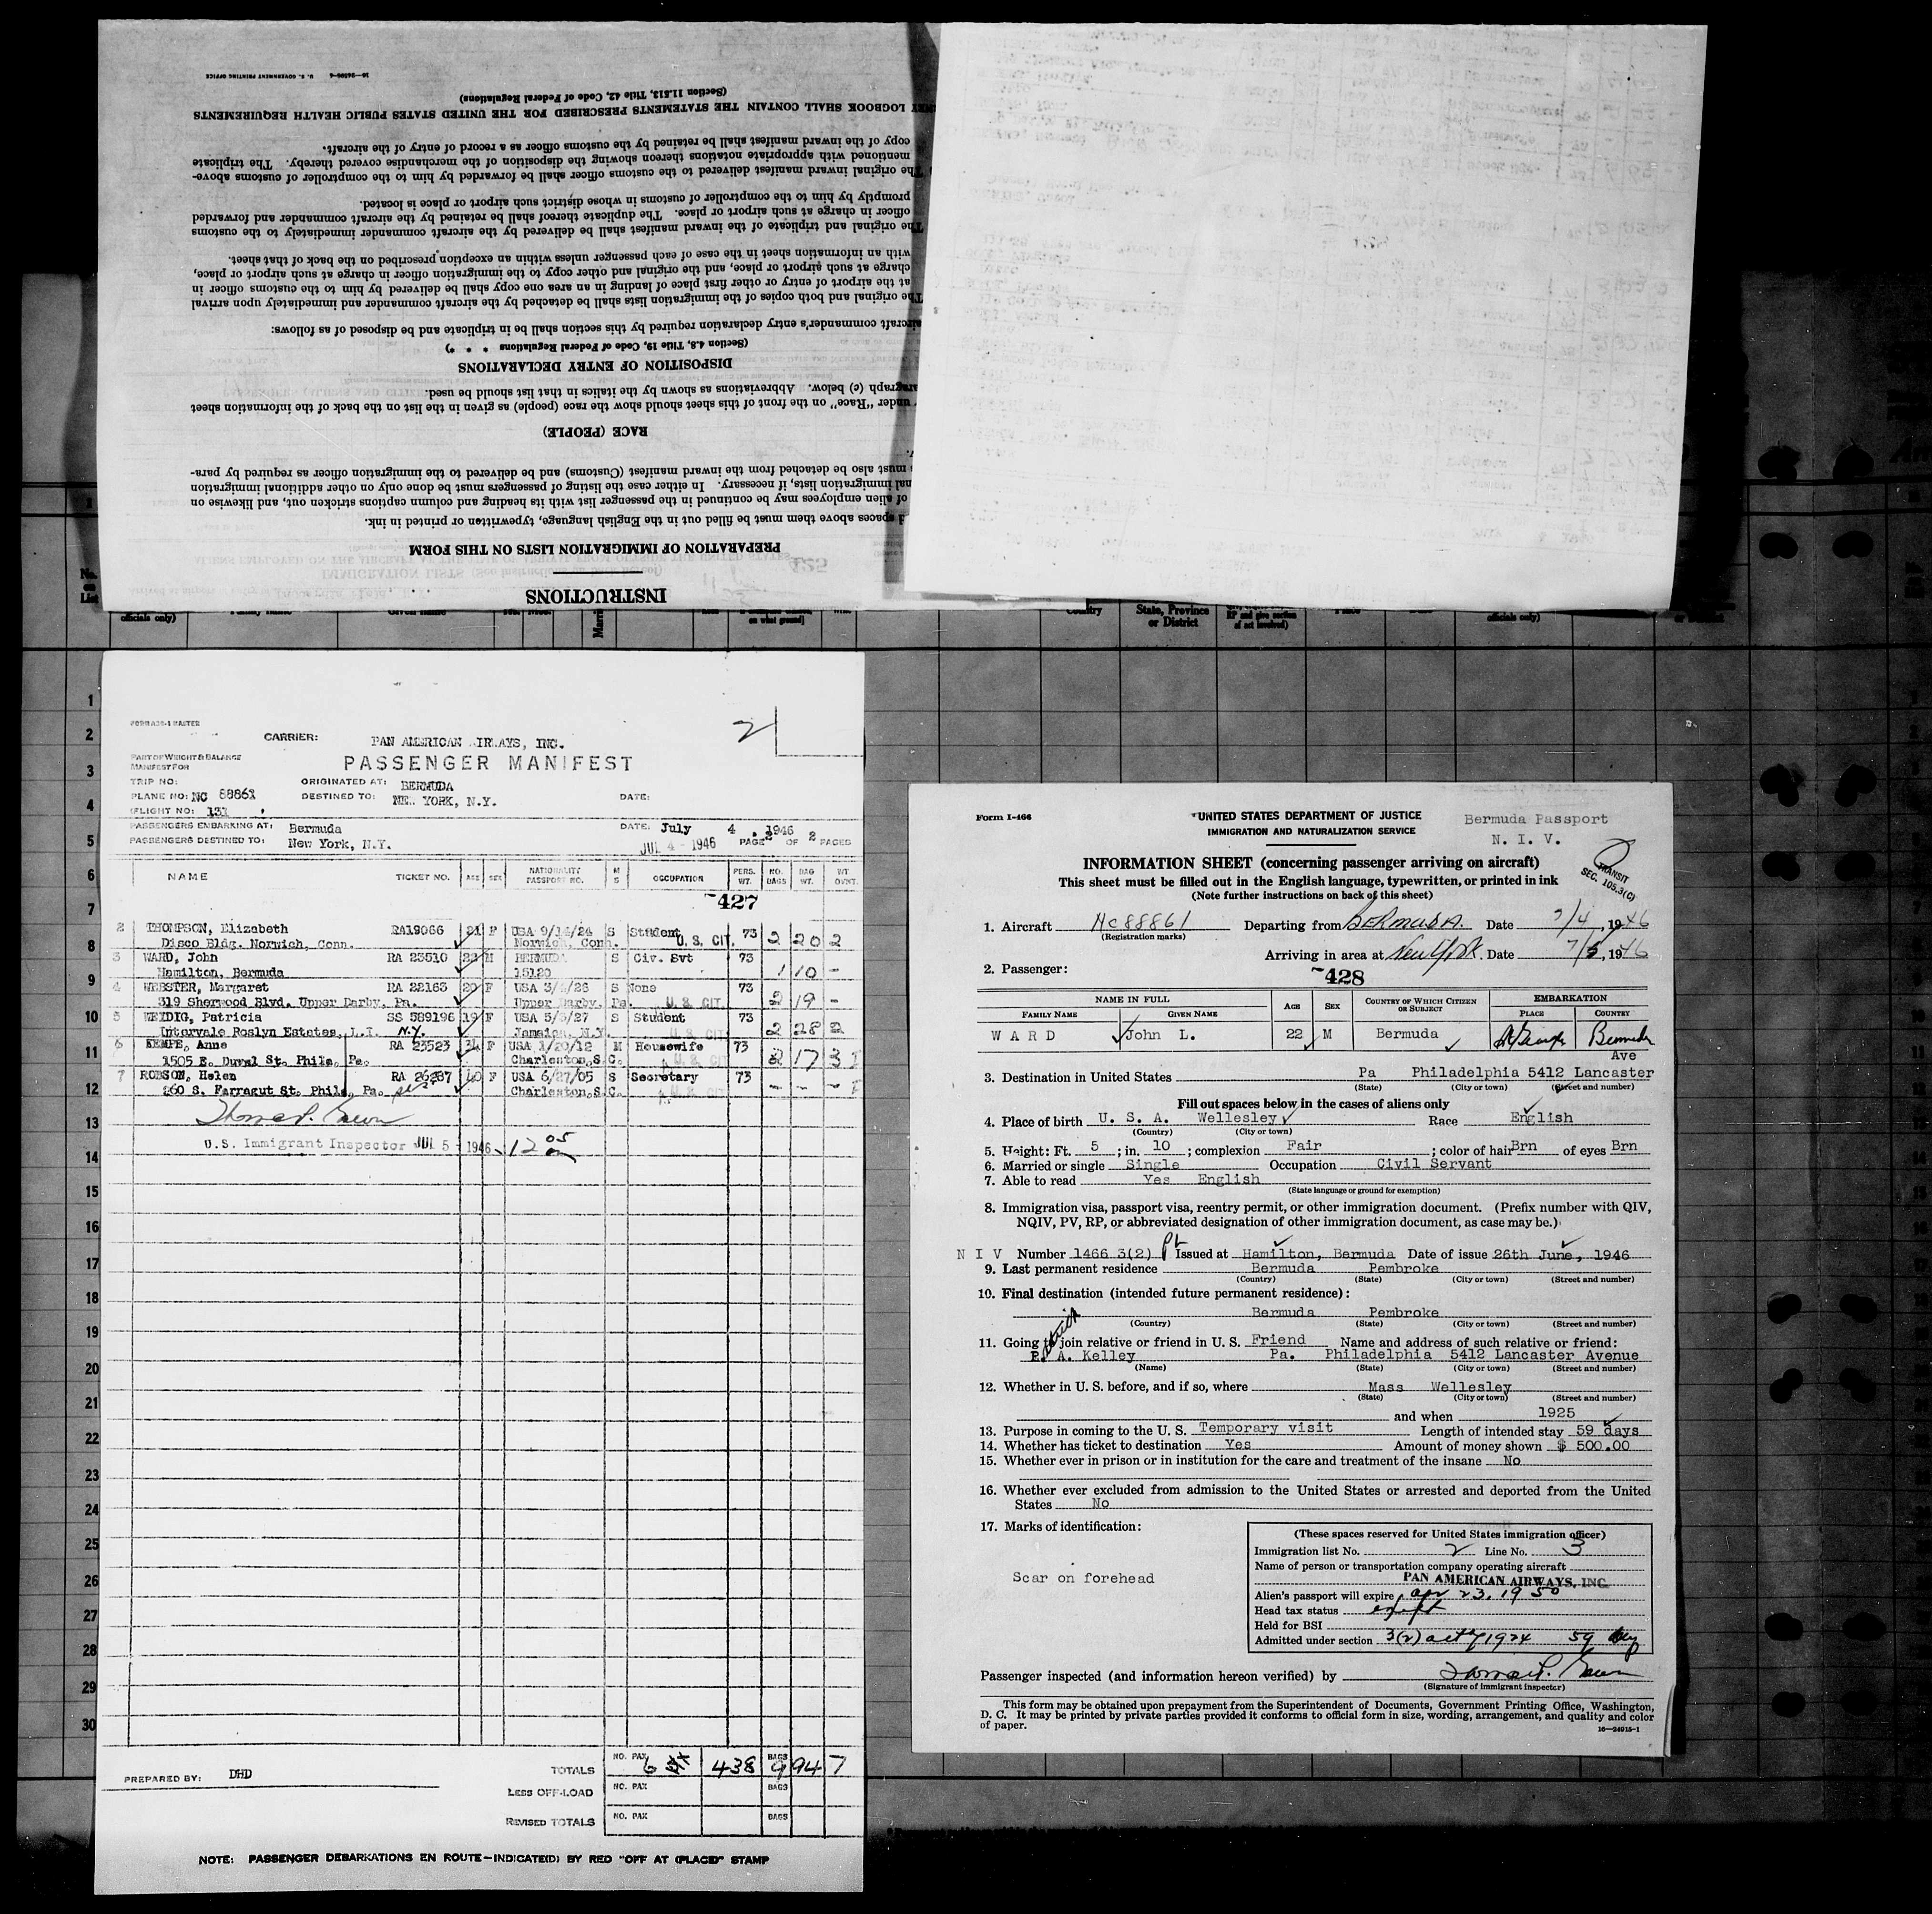 INSTRUCTIONS
IMMIGRATION LISTS (See instructions on back hereof)
425
PREPARATION OF IMMIGRATION LISTS ON THIS FORM
d spaces above them must be filled out in the English language, typewritten or printed in ink.
of alien employees may be continued in the passenger list with its heading and column captions stricken out, and likewise on
nal immigration lists, if necessary. In either case the listing of passengers must be done only on other additional immigration
must also be detached from the inward manifest (Customs) and be delivered to the immigration officer as required by para-
RACE (PEOPLE)
under "Race" on the front of this sheet should show the race (people) as given in the list on the back of the information sheet
aragraph (c) below. Abbreviations as shown by the italics in that list should be used.
DISPOSITION OF ENTRY DECLARATIONS
(Section 4.8, Title 19, Code of Federal Regulations * * *)
aircraft commander's entry declaration required by this section shall be in triplicate and be disposed of as follows:
The original and both copies of the immigration lists shall be detached by the aircraft commander and immediately upon arrival
at the airport of entry or other first place of landing in an area one copy shall be delivered by him to the customs officer in
charge at such airport or place, and the original and other copy to the immigration officer in charge at such airport or place,
with an information sheet in the case of each passenger unless within an exception prescribed on the back of that sheet.
The original and triplicate of the inward manifest shall be delivered by the aircraft commander immediately to the customs
officer in charge at such airport or place. The duplicate thereof shall be retained by the aircraft commander and forwarded
promptly by him to the comptroller of customs in whose district such airport or place is located.
The original inward manifest delivered to the customs officer shall be forwarded by him to the comptroller of customs above-
mentioned with appropriate notations thereon showing the disposition of the merchandise covered thereby. The triplicate
copy of the inward manifest shall be retained by the customs officer as a record of entry of the aircraft.
LOGBOOK SHALL CONTAIN THE STATEMENTS PRESCRIBED FOR THE UNITED STATES PUBLIC HEALTH REQUIREMENTS
(Section 11.513, Title 42, Code of Federal Regulations)
U. S. GOVERNMENT PRINTING OFFICE 16—24506-4
No. on List
officials only) Family name Given name Country State, Province or District Place officials only)
1
2
3
4
5
6
7
8
9
10
11
12
13
14
15
16
17
18
19
20
21
22
23
24
25
26
27
28
29
30
2
CARRIER: PAN AMERICAN AIRWAYS, INC.
PART OF WEIGHT & BALANCE
MANIFEST FOR
PASSENGER MANIFEST
TRIP NO: ORIGINATED AT: BERMUDA
PLANE NO: NC 88861 DESTINED TO: NEW YORK, N.Y. DATE:
FLIGHT NO: 131
PASSENGERS EMBARKING AT: Bermuda DATE: July 4, 1946
PASSENGERS DESTINED TO: New York, N.Y. JUL 4 - 1946 PAGE 2 OF 2 PAGES
NAME TICKET NO. AGE SEX NATIONALITY PASSPORT NO. M S OCCUPATION PERS. WT. NO. BAGS BAG WT. WT. OVNT.
427
2 THOMPSON, Elizabeth RA19066 21 F USA 9/14/24 S Student 73
Disco Bldg. Norwich, Conn. Norwich, Conn. U. S. CIT. 2 20 2
3 WARD, John RA 23510 22 M BERMUDA S Civ. Svt 73
Hamilton, Bermuda 15120 1 10 -
4 WEBSTER, Margaret RA 22163 20 F USA 3/4/26 S None 73
319 Sherwood Blvd. Upper Darby, Pa. Upper Darby, Pa. U. S. CIT. 2 19 -
5 WEIDIG, Patricia SS 589196 19 F USA 5/5/27 S Student 73
Intervale Roslyn Estates, L.I. N.Y. Jamaica, N.Y. U. S. CIT. 2 28 2
6 KEMPE, Anne RA 23523 34 F USA 1/20/12 M Housewife 73
1505 E. Duval St. Phila, Pa. Charleston, S.C. U. S. CIT. 2 17 3
7 ROBSON, Helen RA 26287 40 F USA 6/27/05 S Secretary 73
260 S. Farragut St. Phila, Pa. Charleston, S.C. U. S. CIT. - - -
U.S. Immigrant Inspector JUL 5 - 1946 - 12 05 am
PREPARED BY: DHD
TOTALS NO. PAX 6 438 BAGS 9 94 7
LESS OFF-LOAD NO. PAX BAGS
REVISED TOTALS NO. PAX BAGS
NOTE: PASSENGER DEBARKATIONS EN ROUTE—INDICATE(D) BY RED "OFF AT (PLACE)" STAMP
Form I-466
UNITED STATES DEPARTMENT OF JUSTICE
IMMIGRATION AND NATURALIZATION SERVICE
Bermuda Passport
N. I. V.
TRANSIT
SEC. 105.3(C)
INFORMATION SHEET (concerning passenger arriving on aircraft)
This sheet must be filled out in the English language, typewritten, or printed in ink
(Note further instructions on back of this sheet)
1. Aircraft NC88861 Departing from BERMUDA. Date 7/4, 1946
(Registration marks)
Arriving in area at New York. Date 7/5, 1946
2. Passenger: 428
NAME IN FULL AGE SEX COUNTRY OF WHICH CITIZEN OR SUBJECT EMBARKATION
FAMILY NAME GIVEN NAME PLACE COUNTRY
WARD John L. 22 M Bermuda St George Bermuda
Ave
3. Destination in United States Pa Philadelphia 5412 Lancaster
(State) (City or town) (Street and number)
Fill out spaces below in the cases of aliens only
4. Place of birth U. S. A. Wellesley Race English
(Country) (City or town)
5. Height: Ft. 5; in. 10; complexion Fair; color of hair Brn of eyes Brn
6. Married or single Single Occupation Civil Servant
7. Able to read Yes English
(State language or ground for exemption)
8. Immigration visa, passport visa, reentry permit, or other immigration document. (Prefix number with QIV,
NQIV, PV, RP, or abbreviated designation of other immigration document, as case may be.)
N I V Number 1466 3(2) Issued at Hamilton, Bermuda Date of issue 26th June, 1946
9. Last permanent residence Bermuda Pembroke
(Country) (State) (City or town) (Street and number)
10. Final destination (intended future permanent residence):
Bermuda Pembroke
(Country) (State) (City or town) (Street and number)
11. Going to join relative or friend in U. S. Friend Name and address of such relative or friend:
P. A. Kelley Pa. Philadelphia 5412 Lancaster Avenue
(Name) (State) (City or town) (Street and number)
12. Whether in U. S. before, and if so, where Mass Wellesley
(State) (City or town) (Street and number)
and when 1925
13. Purpose in coming to the U. S. Temporary visit Length of intended stay 59 days
14. Whether has ticket to destination Yes Amount of money shown $ 500.00
15. Whether ever in prison or in institution for the care and treatment of the insane No
16. Whether ever excluded from admission to the United States or arrested and deported from the United
States No
17. Marks of identification:
Scar on forehead
(These spaces reserved for United States immigration officer)
Immigration list No. 2 Line No. 3
Name of person or transportation company operating aircraft
PAN AMERICAN AIRWAYS, INC.
Alien's passport will expire Apr 23, 1950
Head tax status exempt
Held for BSI
Admitted under section 3(2) act of 1924 59 days
Passenger inspected (and information hereon verified) by
(Signature of immigrant inspector)
This form may be obtained upon prepayment from the Superintendent of Documents, Government Printing Office, Washington,
D. C. It may be printed by private parties provided it conforms to official form in size, wording, arrangement, and quality and color
of paper.
16—24915-1